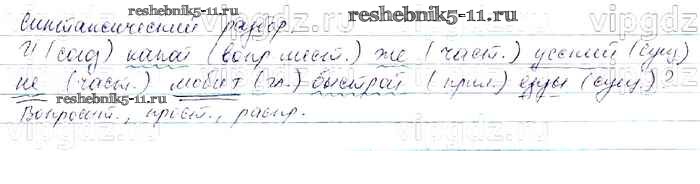 Синтаксический разбор.
reshebnik5-11.ru
И (союз) какой (вопр. мест.) же (част.) русский (сущ.)
не (част.) любит (гл.) быстрой (прил.) езды (сущ.)?
reshebnik5-11.ru
Вопросит., прост., распр.